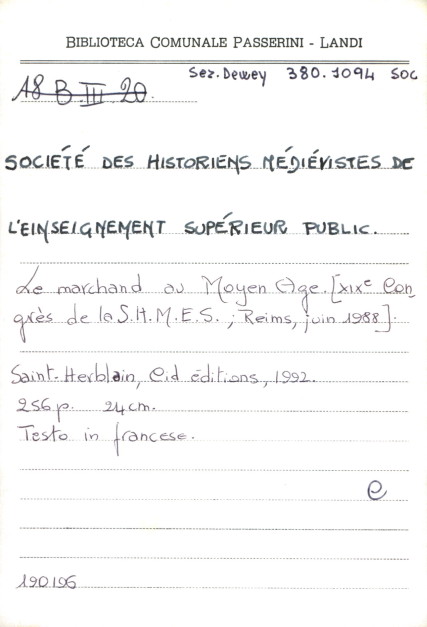 BIBLIOTECA COMUNALE PASSERINI - LANDI
Sez. Dewey 380.1094 SOC
18 B III 20
SOCIÉTÉ DES HISTORIENS MÉDIÉVISTES DE
L'EINSEIGNEMENT SUPÉRIEUR PUBLIC.
Le marchand au Moyen Age. [XIXe Con-
grès de la S.H.M.E.S.; Reims, juin 1988].
Saint-Herblain, Cid éditions, 1992.
256 p. 24 cm.
Testo in francese.
e
190196